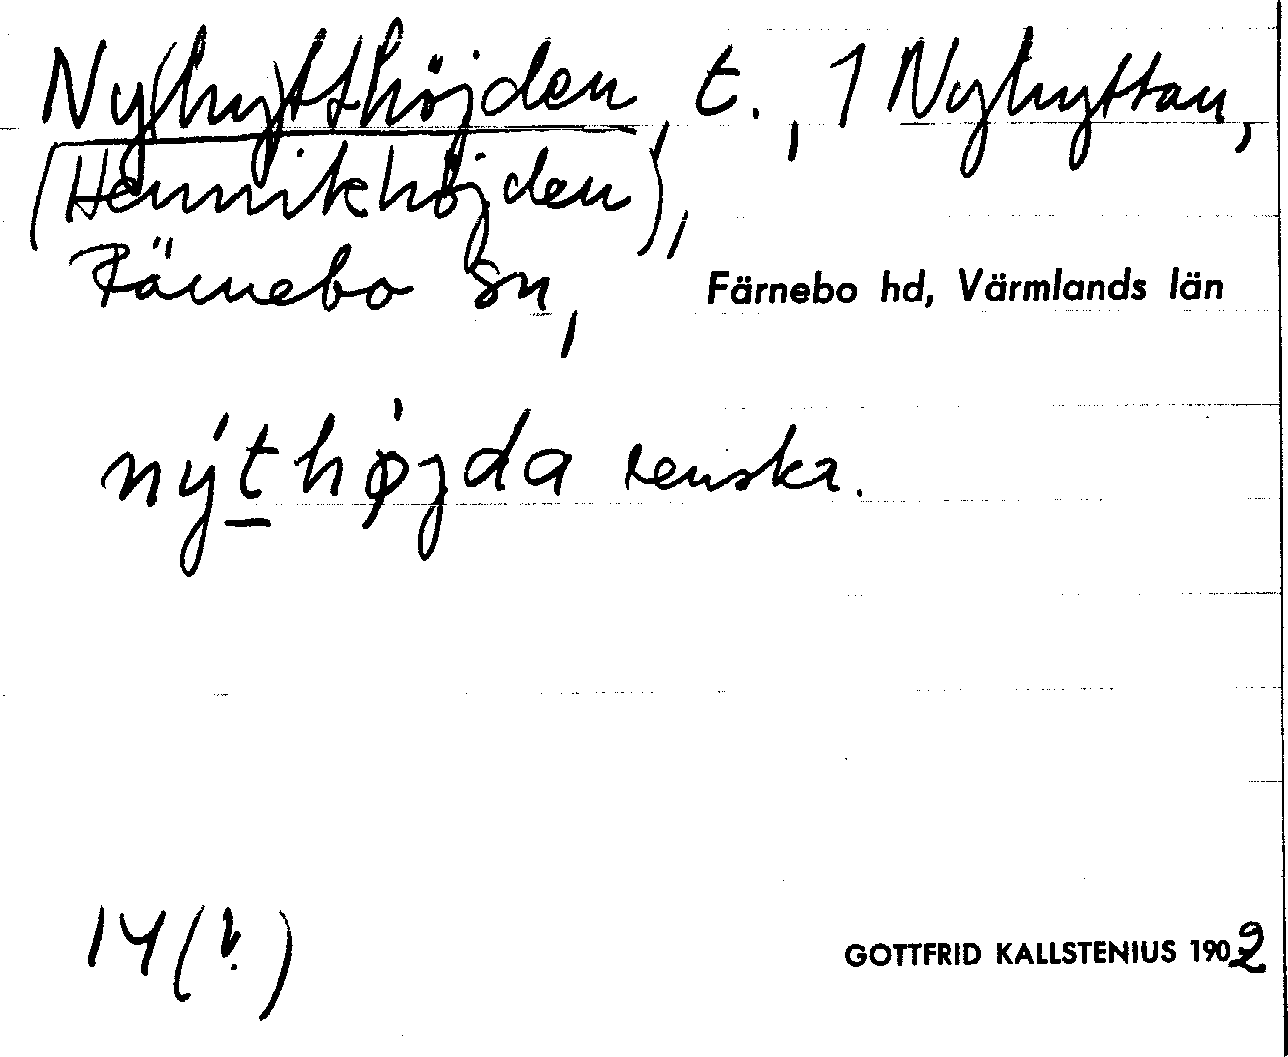 Ny(hy)tthöjden, t., 1 Nyhyttan,
(Henrikhöjden),
Färnebo sn, Färnebo hd, Värmlands län
nýthø̍jda
14(?)
GOTTFRID KALLSTENIUS 1902